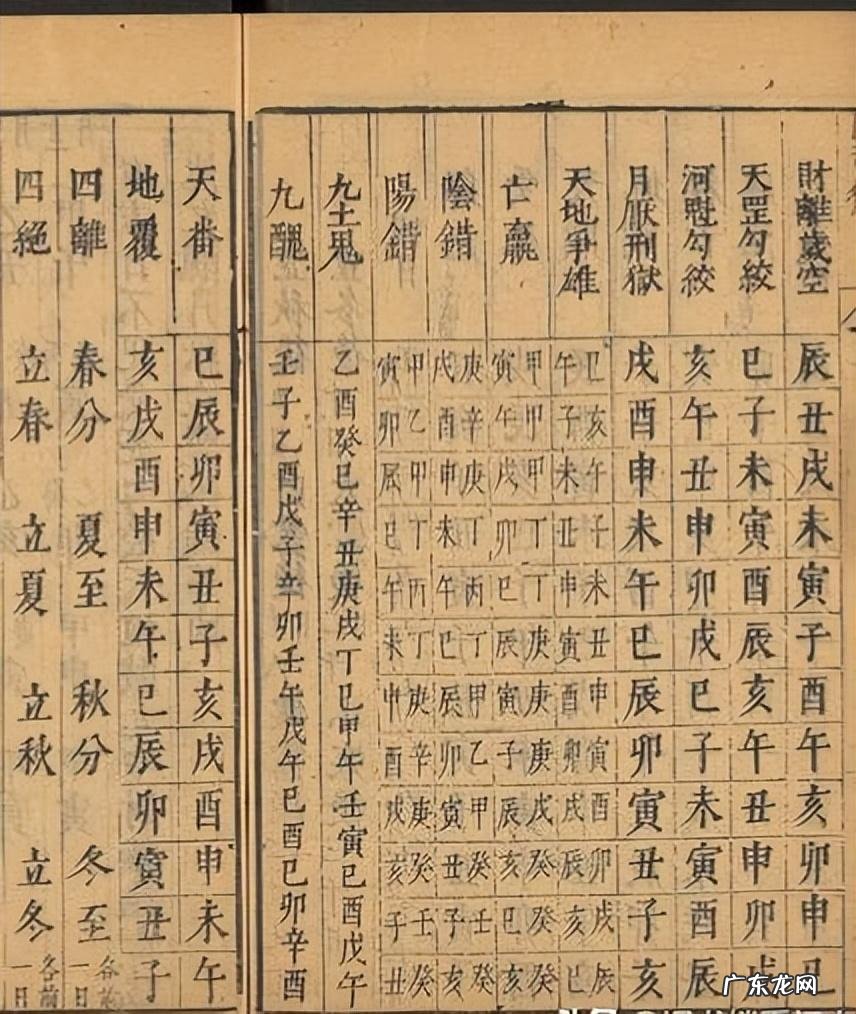 財離歲空 辰 丑 戌 未 寅 子 酉 午 亥 卯 申 丑
天罡勾絞 巳 子 未 寅 酉 辰 亥 午 丑 申 卯 戌
河魁勾絞 亥 午 丑 申 卯 戌 巳 子 未 寅 酉 辰
月厭刑獄 戌 酉 申 未 午 巳 辰 卯 寅 丑 子 亥
天地爭雄 巳午 亥子 午未 子丑 未申 丑寅 申酉 寅卯 酉戌 卯辰 戌亥 辰巳
亡羸 甲寅 甲午 甲戌 丁卯 丁巳 庚辰 庚寅 庚子 戊辰 癸亥 癸巳 癸亥
陰錯 庚戌 辛酉 庚申 丁未 丙午 丁巳 甲辰 乙卯 甲寅 癸丑 壬子 癸亥
陽錯 甲寅 乙卯 甲辰 丁巳 丙午 丁未 庚申 辛酉 庚戌 癸亥 壬子 癸丑
九土鬼 乙酉癸巳辛丑庚戌丁巳甲午壬寅己酉戊午
九醜 壬子乙酉戊子辛卯壬午戊午己酉己卯辛酉
天番 巳 辰 卯 寅 丑 子 亥 戌 酉 申 未 午
地覆 亥 戌 酉 申 未 午 巳 辰 卯 寅 丑 子
四離 春分 夏至 秋分 冬至 各前一日
四絕 立春 立夏 立秋 立冬 各前一日
广东龙网